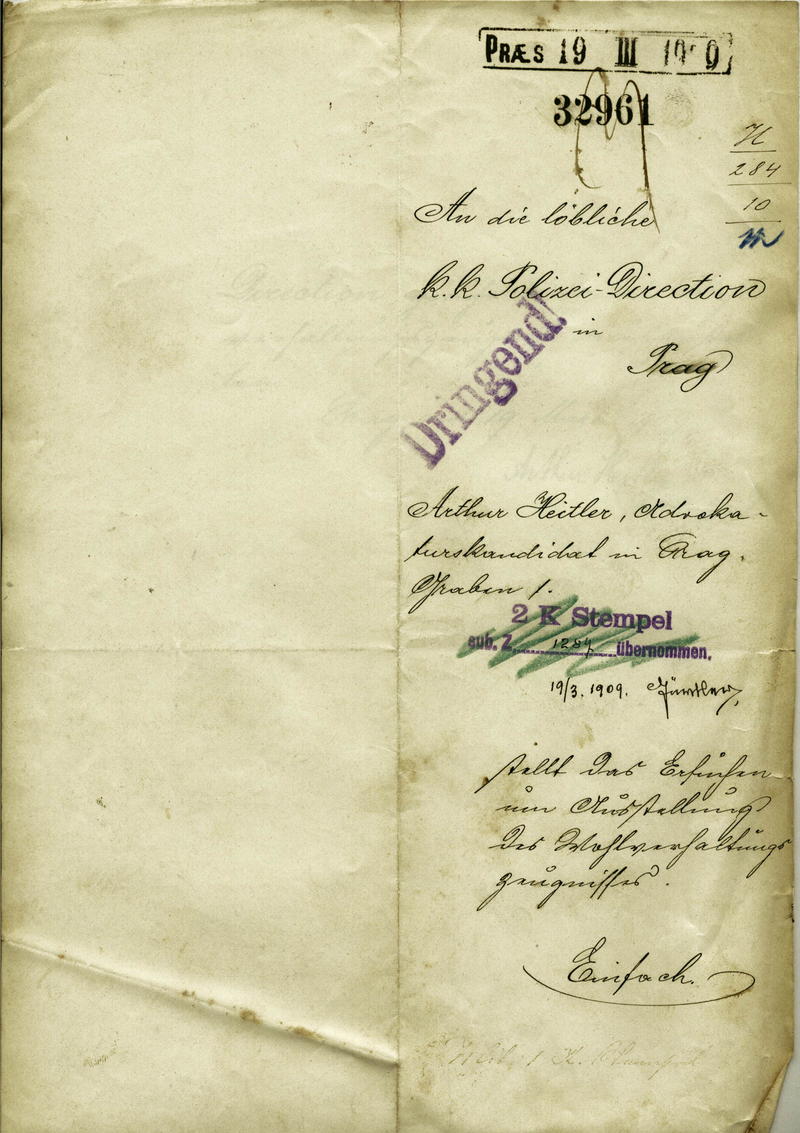 PRÆS 19 III 1909
32961
H
284
10
An die löbliche
k. k. Polizei-Direction
in
Prag
Dringend!
Arthur Heitler, Advoka-
turskandidat in Prag,
Graben 1.
2 K Stempel
sub. Z. 1284 übernommen.
19/3. 1909.
stellt das Ersuchen
um Ausstellung
des Wohlverhaltungs
zeugnisses.
Einfach.